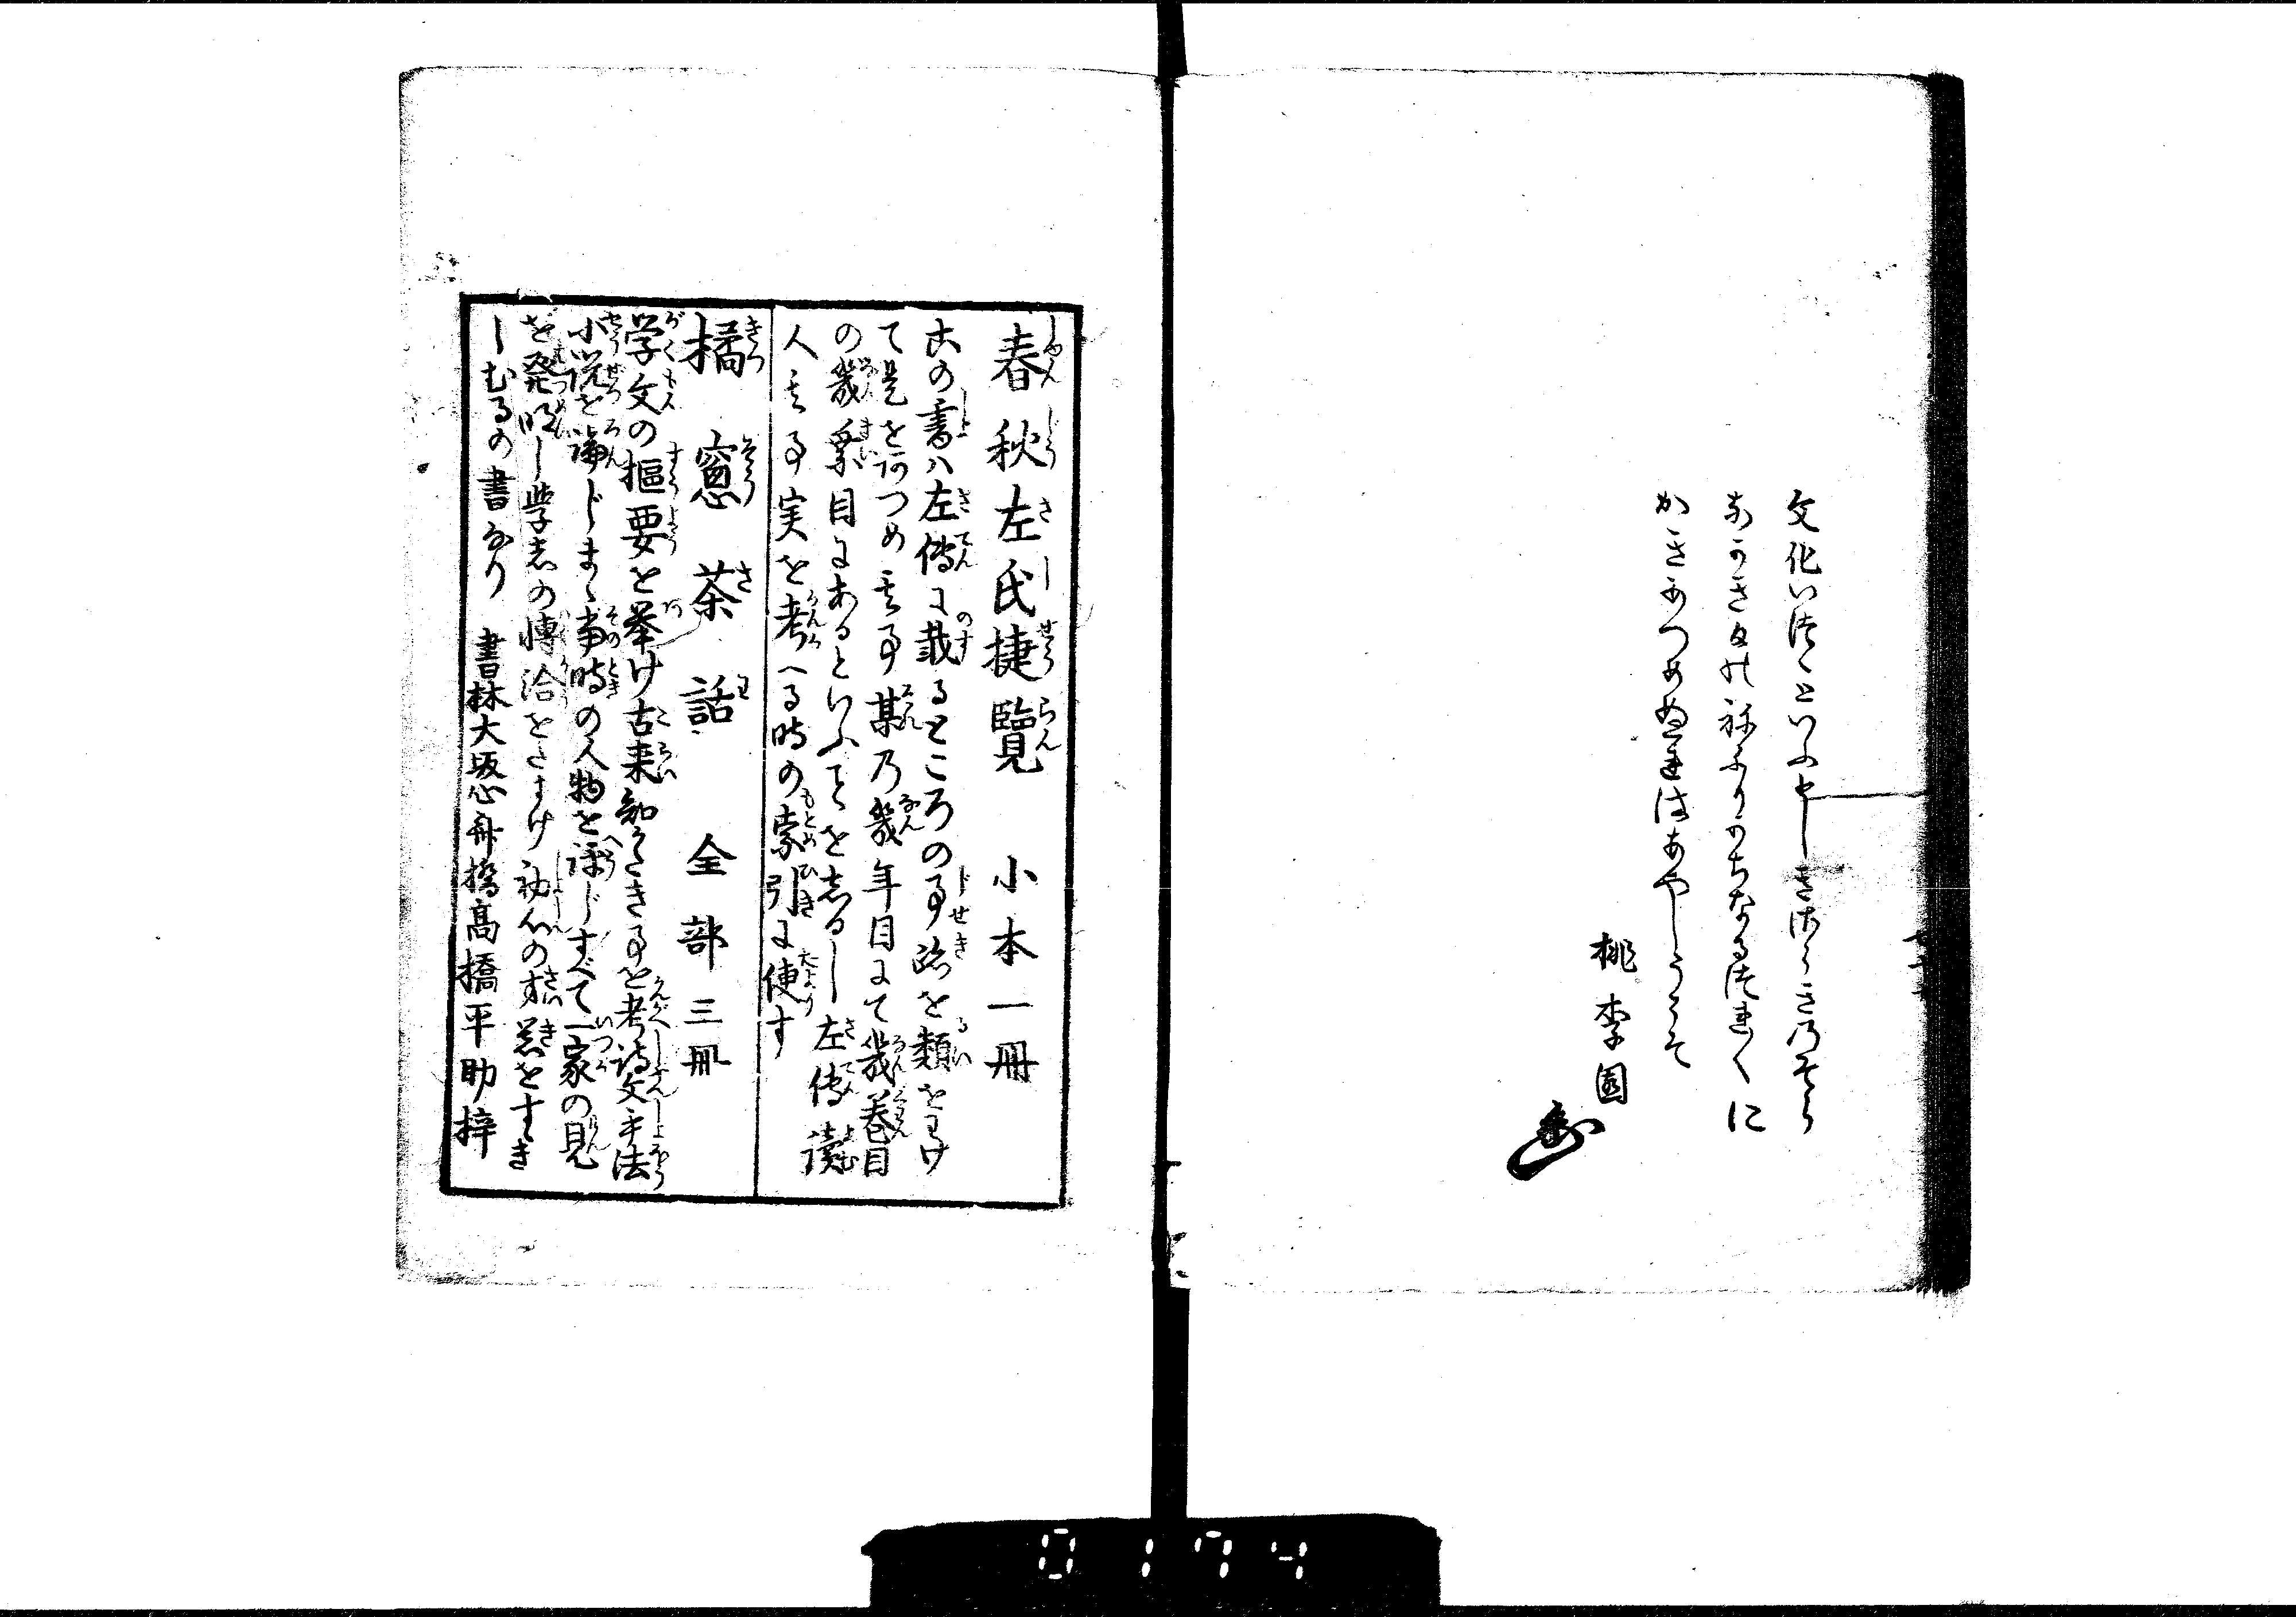 文化いつゝといふとしきさらきのそら
かきあつめぬれはあやしうこそ
桃李園
春秋左氏捷覧 小本一冊
この書ハ左傳に載るところの事跡を類をわけ
て是をあつめ其事某乃幾年目にて幾巻目
の幾葉目にあるといふことを志るし左傳讀
人其事実を考へる時の索引に便す
橘窓茶話 全部三冊
学文の樞要を挙け古来知かたき事を考詩文手法
小説を論じまゝ當時の人物を評じすべて一家の見
を発明し学者の博洽をたすけ初心の才器をすゝま
しむるの書なり 書林大坂心斎橋高橋平助梓
0174